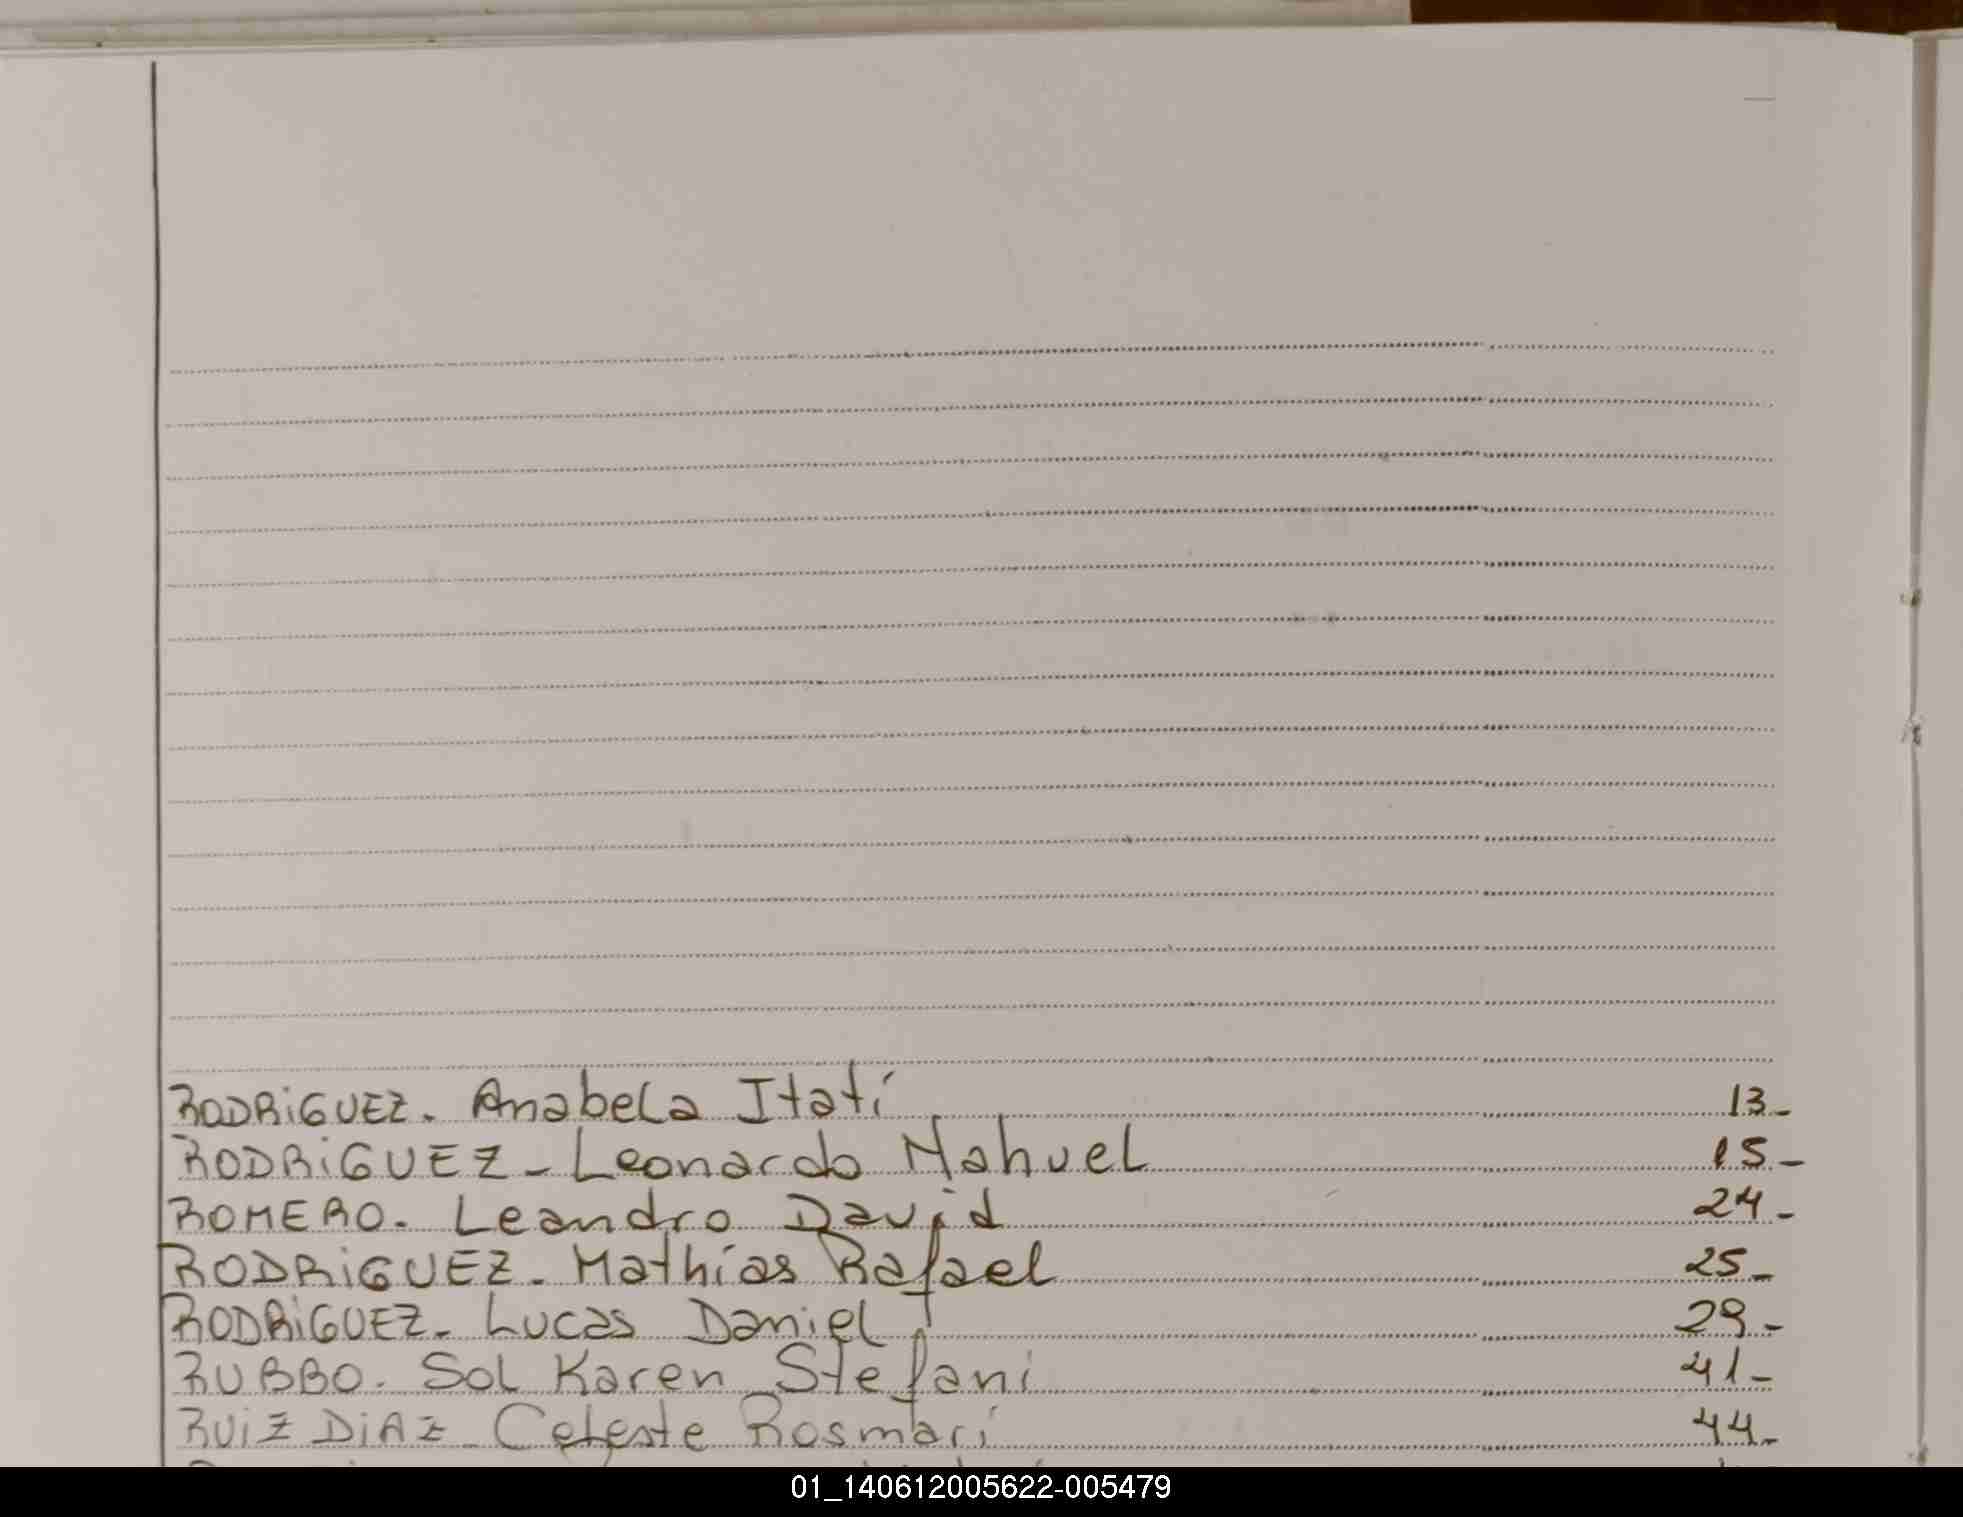 RODRiGUEZ. Anabela Itatí 13-
RODRiGUEZ - Leonardo Nahuel 15-
ROMERO. Leandro David 24-
RODRiGUEZ. Mathías Rafael 25-
RODRiGUEZ. Lucas Daniel 29-
RUBBO. Sol Karen Stefani 41-
RUiZ DiAZ - Celeste Rosmari 44-
01_140612005622-005479